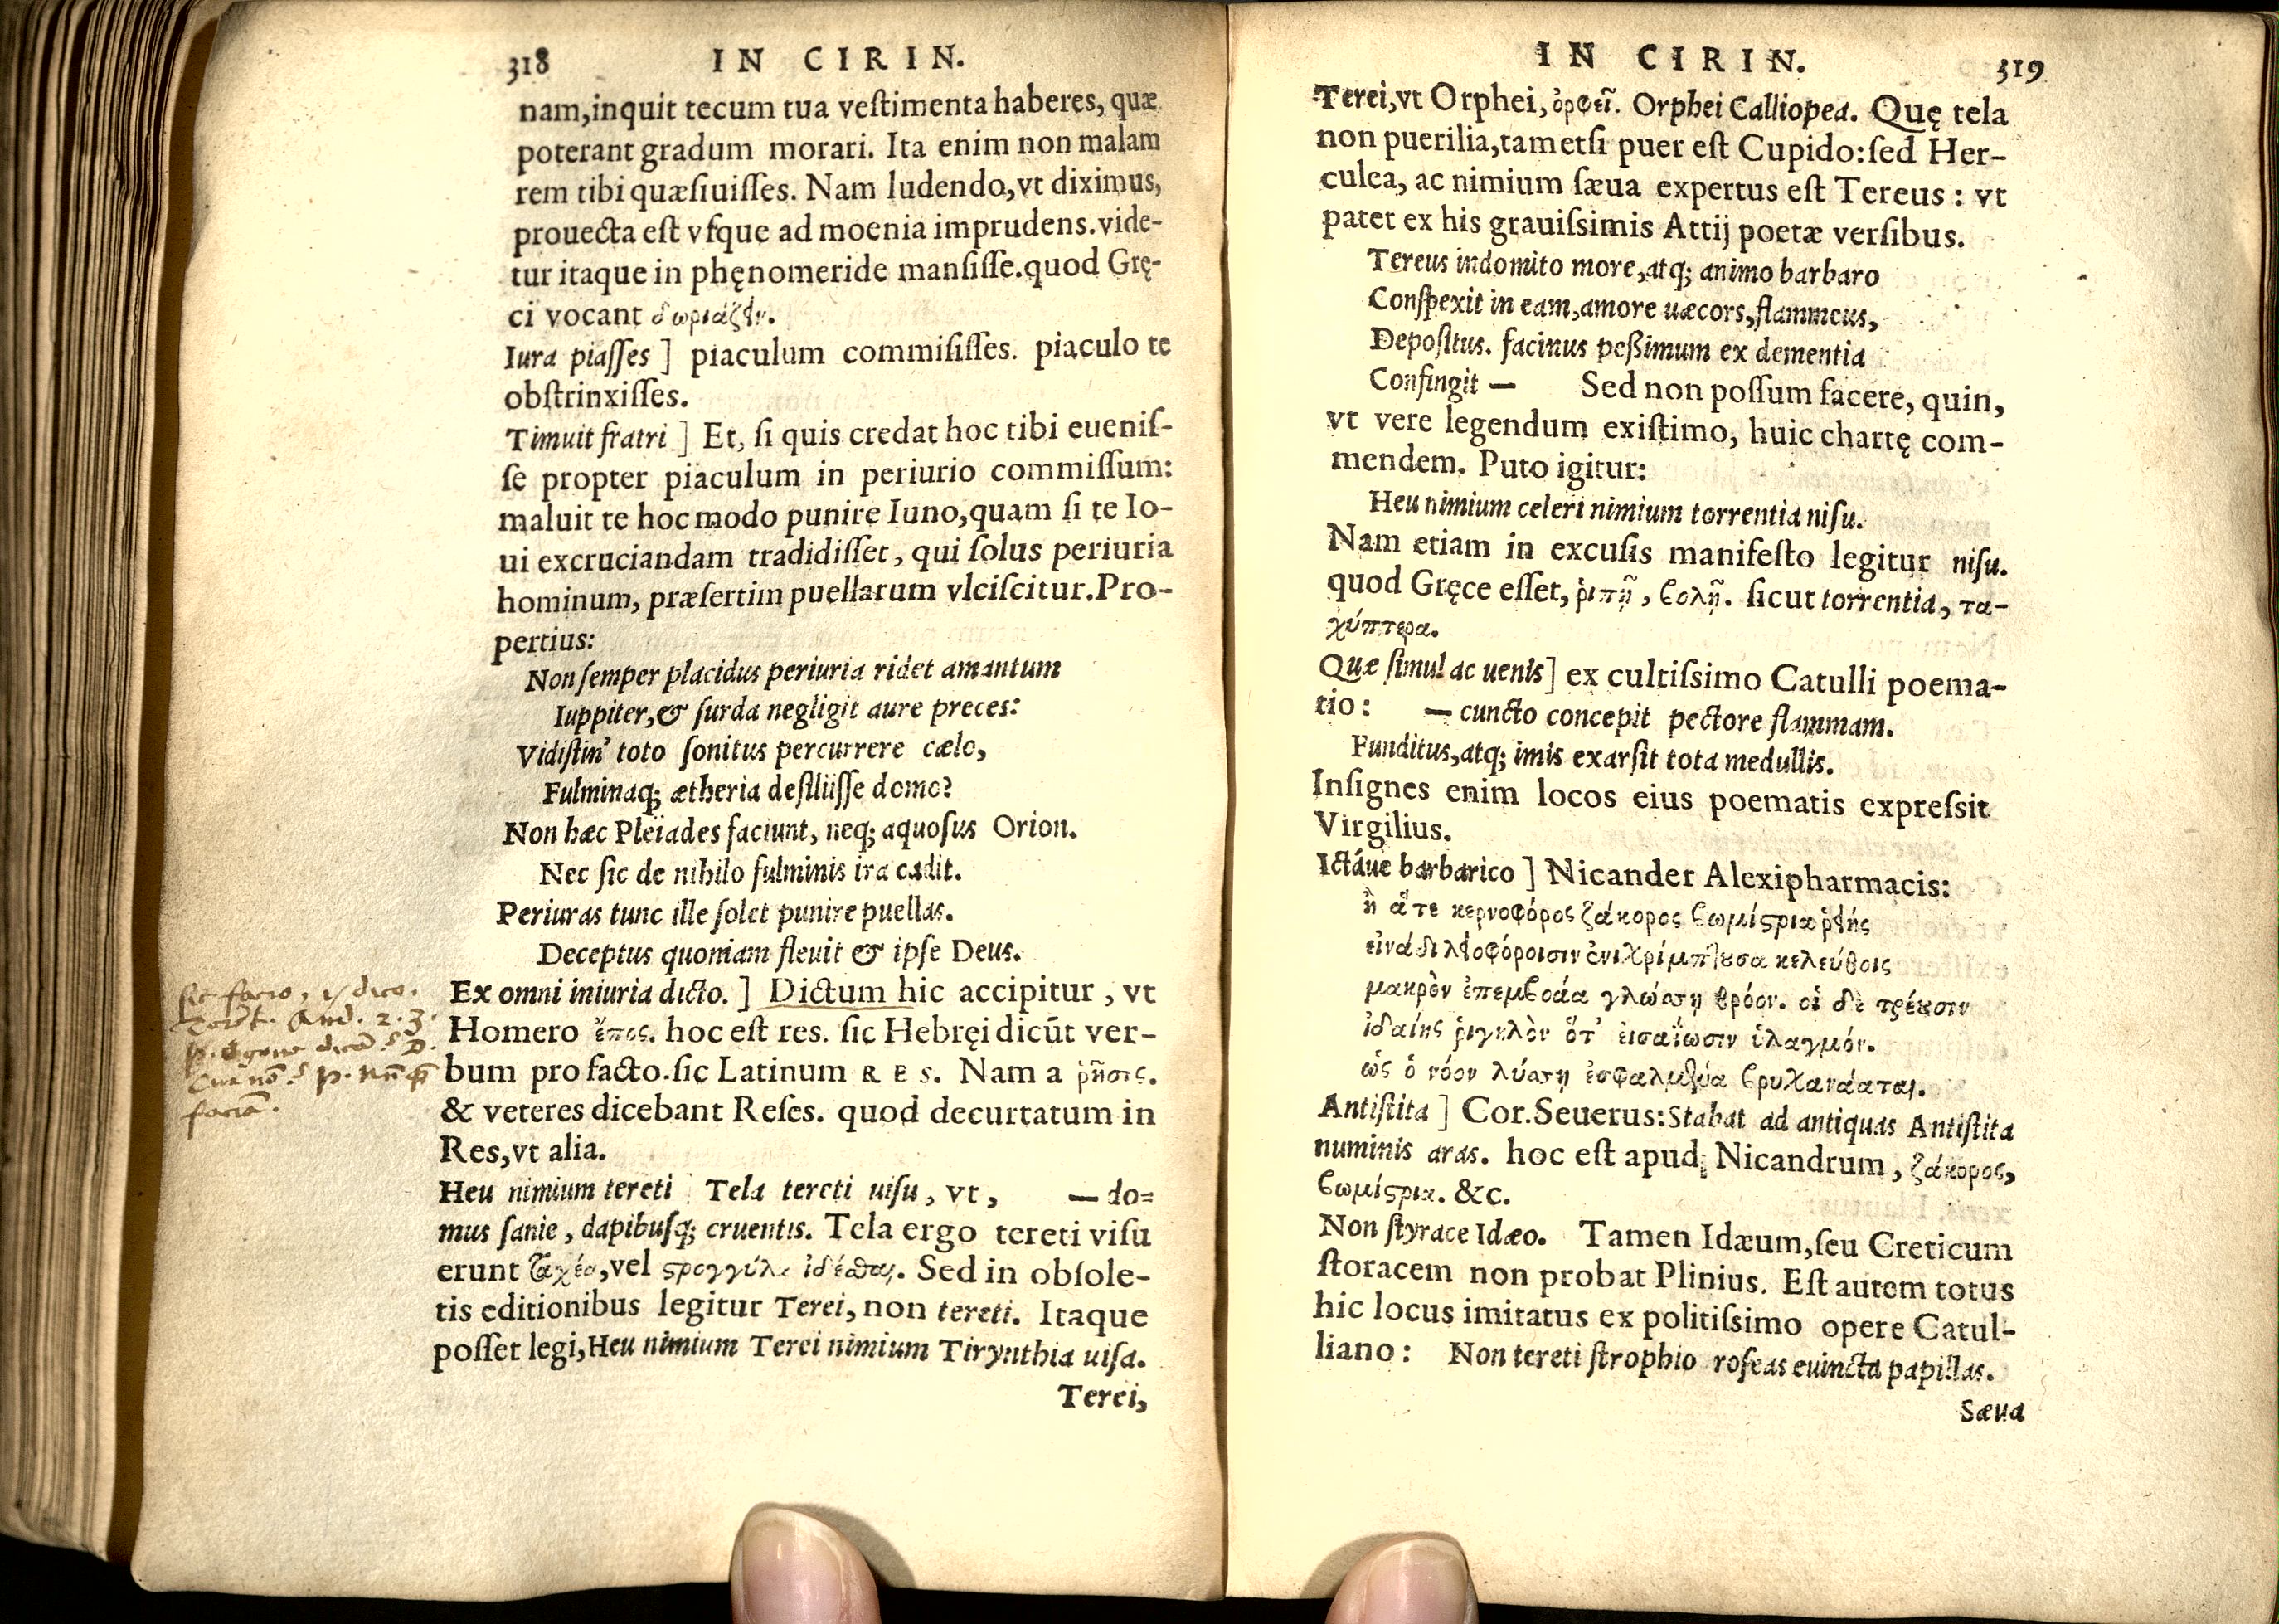 318 IN CIRIN.
nam,inquit tecum tua veſtimenta haberes, quæ
poterant gradum morari. Ita enim non malam
rem tibi quæſiuiſſes. Nam ludendo,vt diximus,
prouecta eſt vſque ad moenia imprudens.vide-
tur itaque in phęnomeride manſiſſe.quod Grę-
ci vocant δωριάζειν.
Iura piaſſes ] piaculum commiſiſſes. piaculo te
obſtrinxiſſes.
Timuit fratri ] Et, ſi quis credat hoc tibi eueniſ-
ſe propter piaculum in periurio commiſſum:
maluit te hoc modo punire Iuno,quam ſi te Io-
ui excruciandam tradidiſſet, qui ſolus periuria
hominum, præſertim puellarum vlciſcitur.Pro-
pertius:
Non ſemper placidus periuria ridet amantum
Iuppiter,& ſurda negligit aure preces:
Vidiſtin' toto ſonitus percurrere cælo,
Fulminaq; ætheria deſiluiſſe domo?
Non hæc Pleiades faciunt, neq; aquoſus Orion.
Nec ſic de nihilo fulminis ira cadit.
Periuras tunc ille ſolet punire puellas.
Deceptus quoniam fleuit & ipſe Deus.
Ex omni iniuria dicto. ] Dictum hic accipitur, vt
Homero ἔπος. hoc eſt res. ſic Hebręi dicūt ver-
bum pro facto.ſic Latinum RES. Nam a ῥῆσις.
& veteres dicebant Reſes. quod decurtatum in
Res,vt alia.
Heu nimium tereti ] Tela tereti uiſu, vt, — do=
mus ſanie, dapibuſq; cruentis. Tela ergo tereti viſu
erunt ταχέα,vel ϛρογγύλα ἰδέσθαι. Sed in obſole-
tis editionibus legitur Terei, non tereti. Itaque
poſſet legi,Heu nimium Terei nimium Tirynthia uiſa.
Terei,
ſic facio, dico.
And. 2. 3.
IN CIRIN. 319
Terei,vt Orphei, ὀρφεῖ. Orphei Calliopea. Quę tela
non puerilia,tametſi puer eſt Cupido:ſed Her-
culea, ac nimium ſæua expertus eſt Tereus : vt
patet ex his grauiſsimis Attij poetæ verſibus.
Tereus indomito more,atq; animo barbaro
Conſpexit in eam,amore uæcors,flammeus,
Depoſitus. facinus peßimum ex dementia
Confingit — Sed non poſſum facere, quin,
vt vere legendum exiſtimo, huic chartę com-
mendem. Puto igitur:
Heu nimium celeri nimium torrentia niſu.
Nam etiam in excuſis manifeſto legitur niſu.
quod Gręce eſſet, ῥιπῇ, ϐολῇ. ſicut torrentia, τα-
χύπτερα.
Quæ ſimul ac uenis ] ex cultiſsimo Catulli poema-
tio: — cuncto concepit pectore flammam.
Funditus,atq; imis exarſit tota medullis.
Inſignes enim locos eius poematis expreſsit
Virgilius.
Ictáue barbarico ] Nicander Alexipharmacis:
ἢ ἅτε κερνοφόρος ζάκορος ϐωμίϛρια ῥείης
εἰνάδι λαοφόροισιν ἐνιχρίμπτουσα κελεύθοις
μακρὸν ἐπεμϐοάα γλώσσῃ θρόον. οἱ δὲ τρέουσιν
ἰδαίης ῥιγηλὸν ὅτ' εἰσαΐωσιν ὑλαγμόν.
ὣς ὁ νόον λύσσῃ ἐσφαλμένα ϐρυχανάαται.
Antiſtita ] Cor.Seuerus:Stabat ad antiquas Antiſtita
numinis aras. hoc eſt apud Nicandrum, ζάκορος,
ϐωμίϛρια. &c.
Non ſtyrace Idæo. Tamen Idæum,ſeu Creticum
ſtoracem non probat Plinius. Eſt autem totus
hic locus imitatus ex politiſsimo opere Catul-
liano: Non tereti ſtrophio roſeas euincta papillas.
Sæua